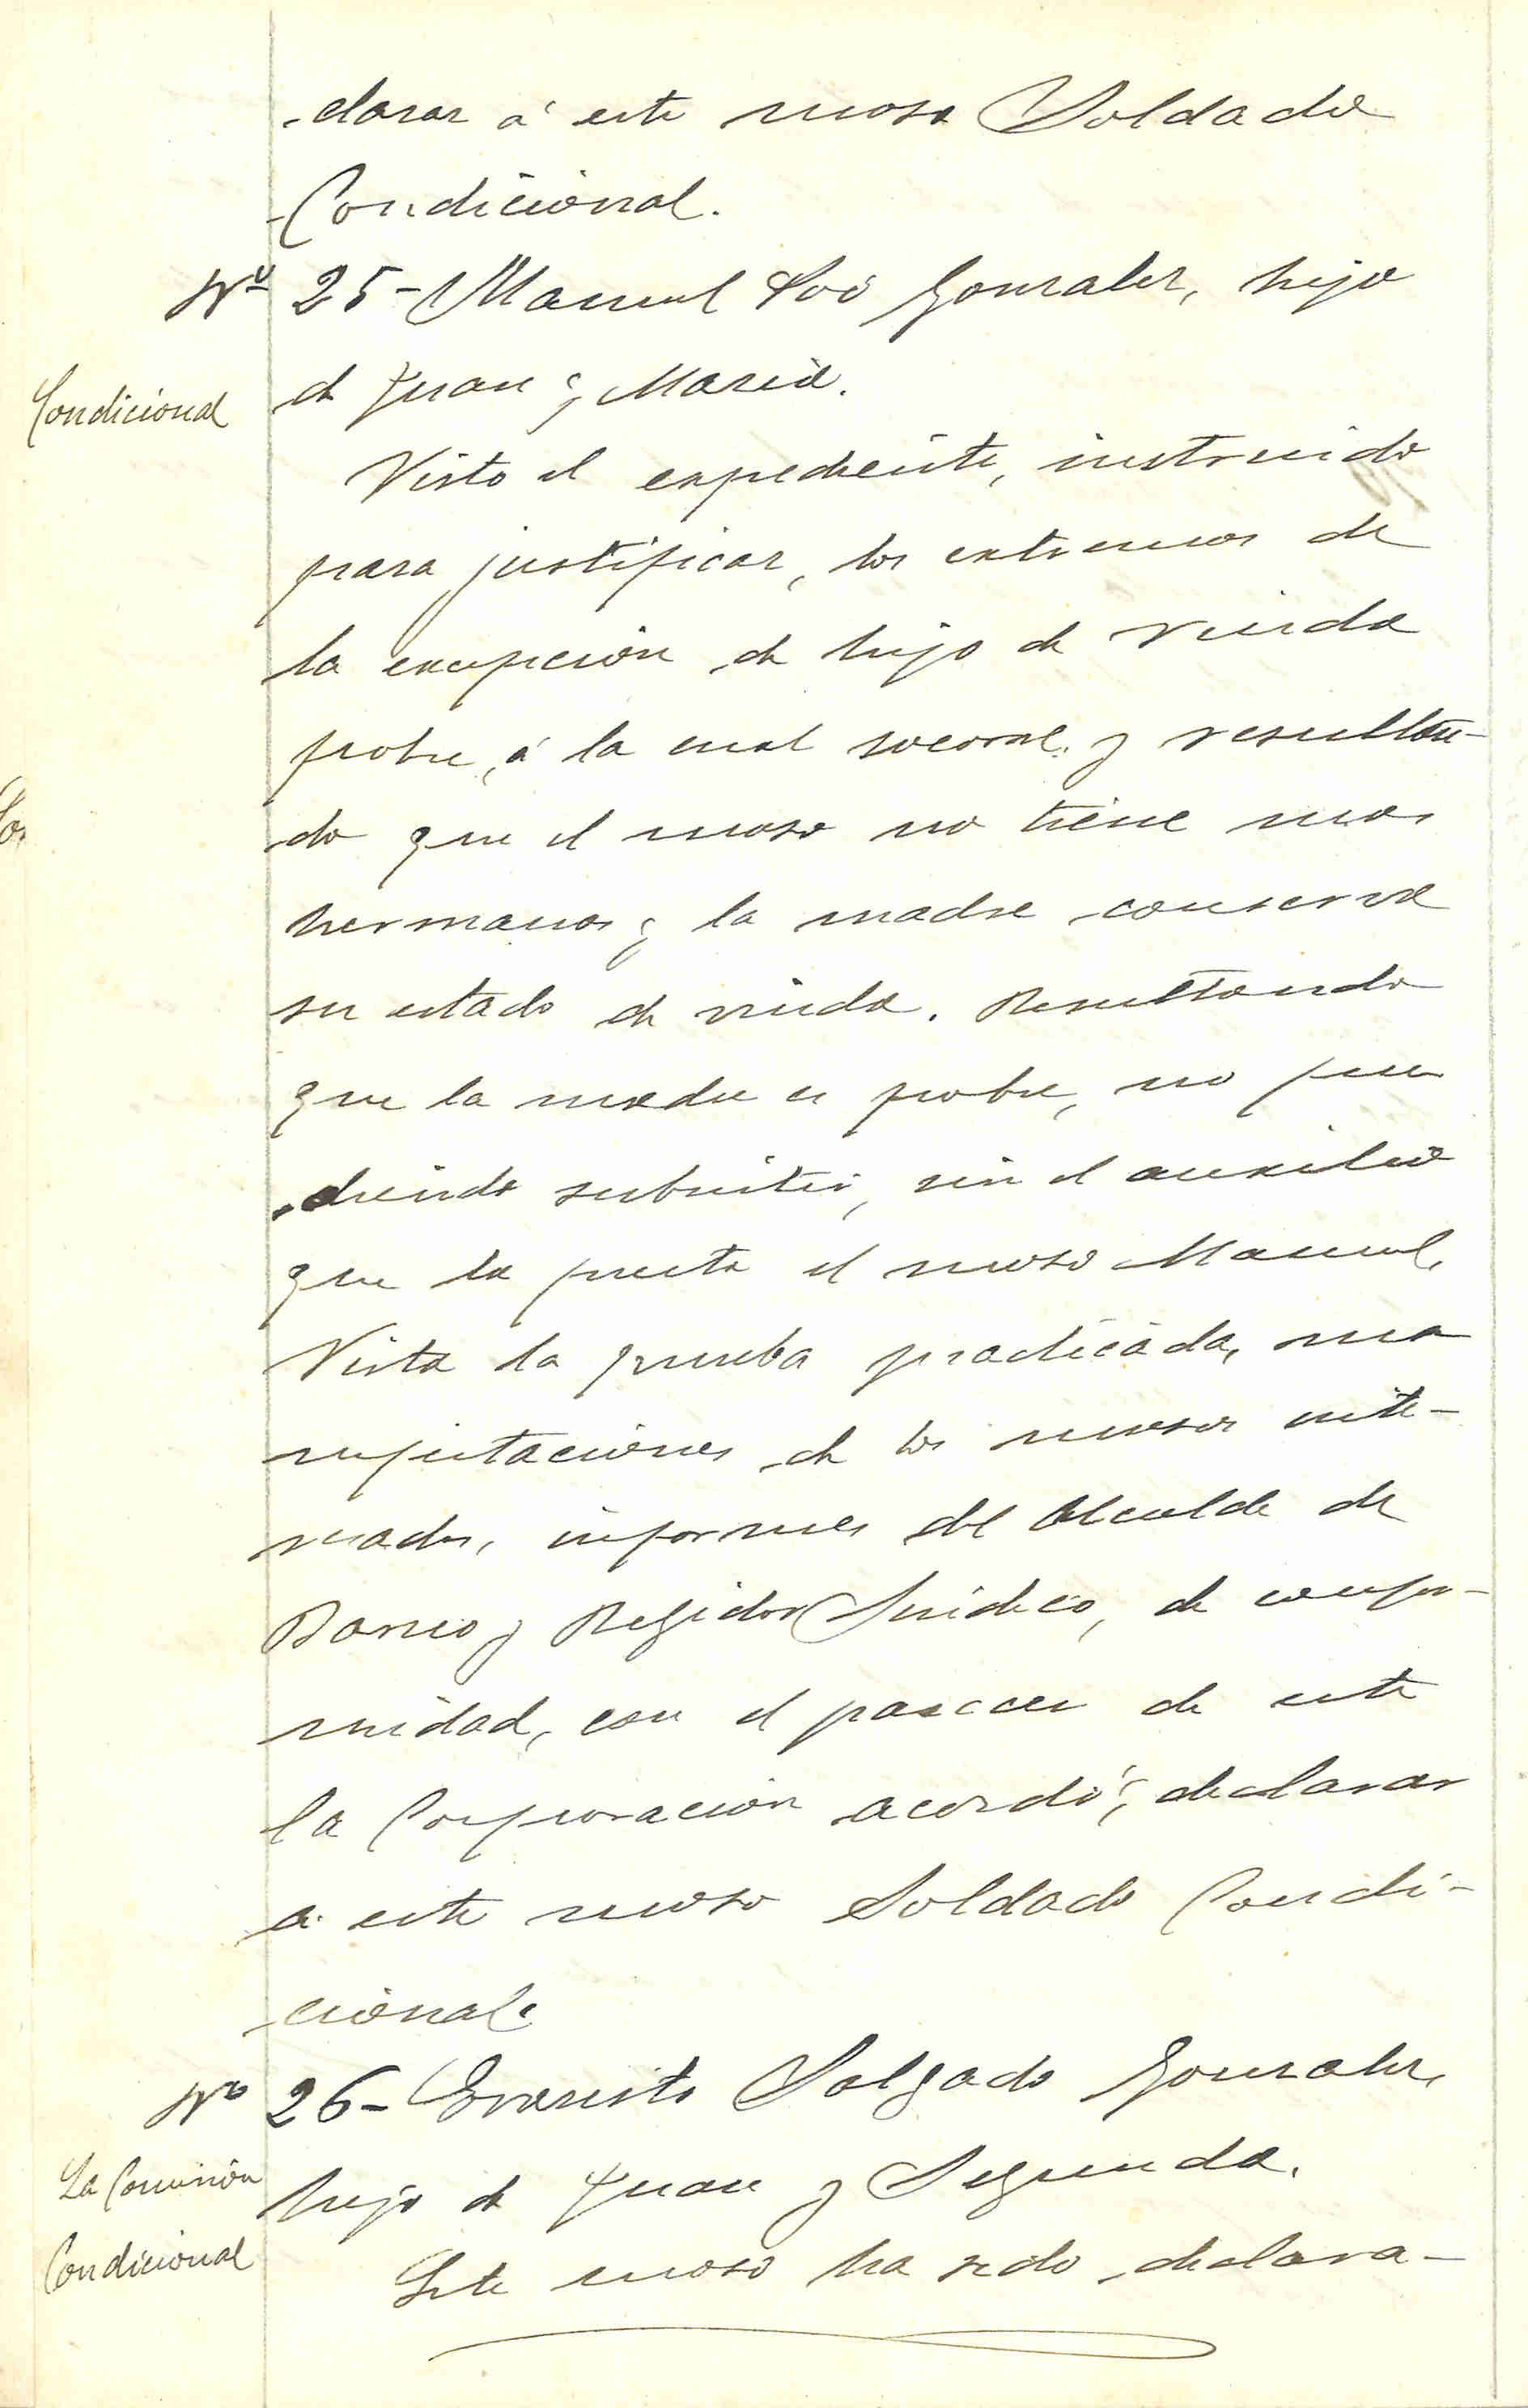 clarar á este moso Soldado
Condicional.
Nº 25- Manuel Gonzalez, hijo
Condicional
de Juan y Maria.
Visto el expediente, instruido
para justificar, los extremos de
la excepcion de hijo de viuda
pobre, á la cual socorre. y resultan-
do que el moso no tiene mas
hermanos y la madre conserva
su estado de viuda. Resultando
que la madre es pobre, no pu
diendo subsistir, sin el auxilio
que la presta el moso Manuel,
Vista la prueba practicada, ma
nifestaciones de los mosos inte-
resados, informes del Alcalde de
Barrio y Regidor Sindico, de confor-
midad, con el parecer de este
la Corporacion acordó, declarar
a este moso Soldado Condi-
cional.
Nº 26- Evaristo Salgado Gonzalez,
La Comisión
hijo de Juan y Segunda.
Condicional
Este moso ha sido declara-